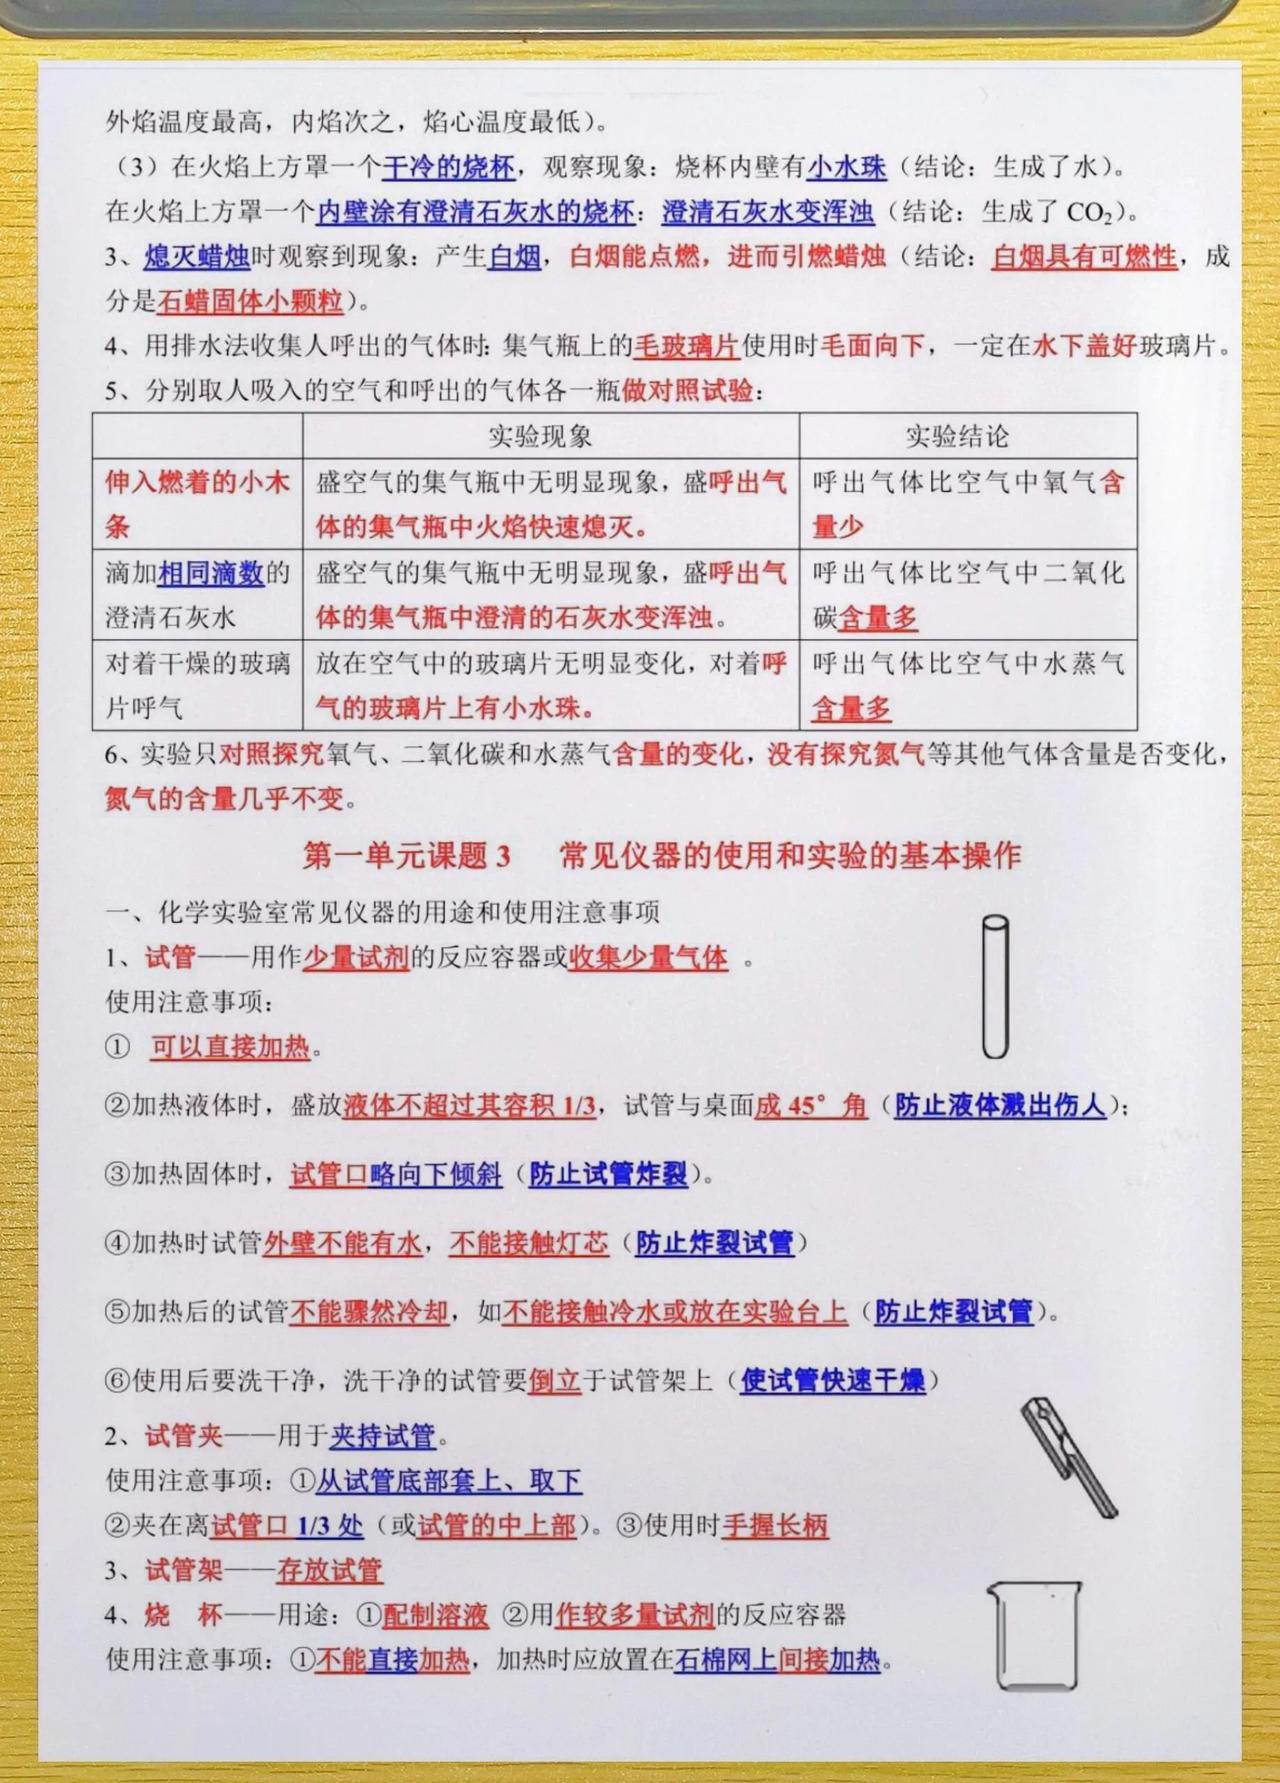 外焰温度最高，内焰次之，焰心温度最低）。
（3）在火焰上方罩一个干冷的烧杯，观察现象：烧杯内壁有小水珠（结论：生成了水）。
在火焰上方罩一个内壁涂有澄清石灰水的烧杯：澄清石灰水变浑浊（结论：生成了 CO₂）。
3、熄灭蜡烛时观察到现象：产生白烟，白烟能点燃，进而引燃蜡烛（结论：白烟具有可燃性，成
分是石蜡固体小颗粒）。
4、用排水法收集人呼出的气体时：集气瓶上的毛玻璃片使用时毛面向下，一定在水下盖好玻璃片。
5、分别取人吸入的空气和呼出的气体各一瓶做对照试验：
实验现象 实验结论
伸入燃着的小木 盛空气的集气瓶中无明显现象，盛呼出气 呼出气体比空气中氧气含
条 体的集气瓶中火焰快速熄灭。 量少
滴加相同滴数的 盛空气的集气瓶中无明显现象，盛呼出气 呼出气体比空气中二氧化
澄清石灰水 体的集气瓶中澄清的石灰水变浑浊。 碳含量多
对着干燥的玻璃 放在空气中的玻璃片无明显变化，对着呼 呼出气体比空气中水蒸气
片呼气 气的玻璃片上有小水珠。 含量多
6、实验只对照探究氧气、二氧化碳和水蒸气含量的变化，没有探究氮气等其他气体含量是否变化，
氮气的含量几乎不变。
第一单元课题 3 常见仪器的使用和实验的基本操作
一、化学实验室常见仪器的用途和使用注意事项
1、试管——用作少量试剂的反应容器或收集少量气体 。
使用注意事项：
① 可以直接加热。
②加热液体时，盛放液体不超过其容积 1/3，试管与桌面成 45° 角（防止液体溅出伤人）；
③加热固体时，试管口略向下倾斜（防止试管炸裂）。
④加热时试管外壁不能有水，不能接触灯芯（防止炸裂试管）
⑤加热后的试管不能骤然冷却，如不能接触冷水或放在实验台上（防止炸裂试管）。
⑥使用后要洗干净，洗干净的试管要倒立于试管架上（使试管快速干燥）
2、试管夹——用于夹持试管。
使用注意事项：①从试管底部套上、取下
②夹在离试管口 1/3 处（或试管的中上部）。③使用时手握长柄
3、试管架——存放试管
4、烧 杯——用途：①配制溶液 ②用作较多量试剂的反应容器
使用注意事项：①不能直接加热，加热时应放置在石棉网上间接加热。